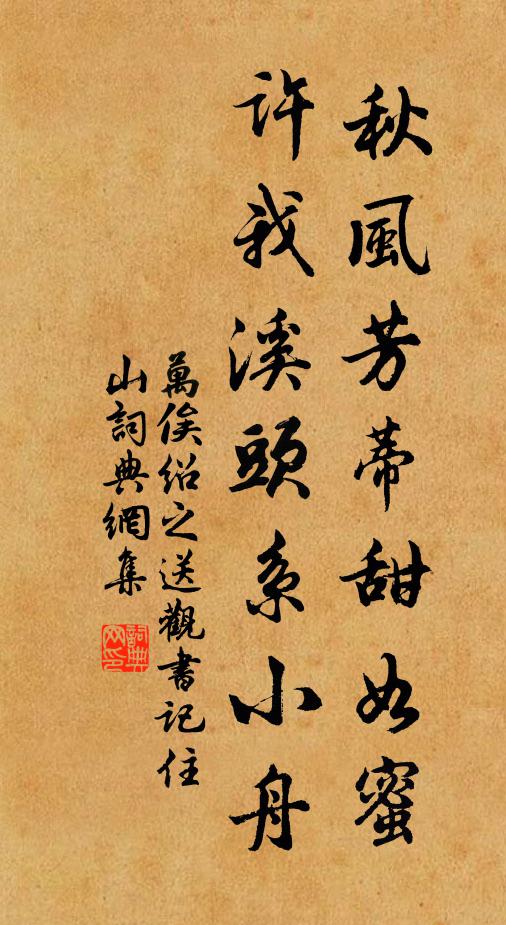 秋風芳蒂甜如蜜
許我溪頭系小舟
萬俟紹之送觀書記住
山詞典網集
詞典
网印